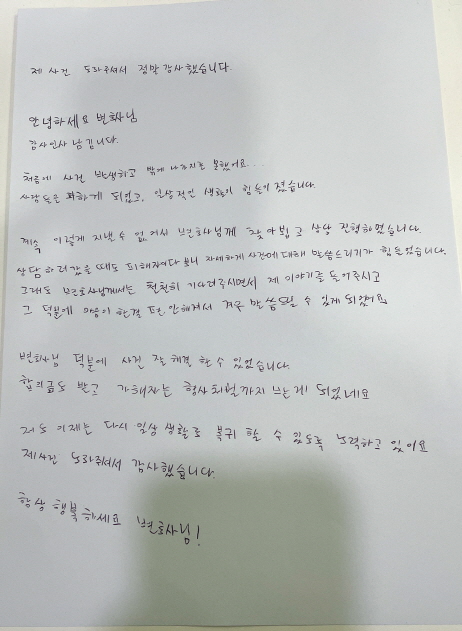 제 사건 도와주셔서 정말 감사했습니다.
안녕하세요 변호사님
감사인사 남깁니다.
처음에 사건 발생하고 밖에 나가지를 못했어요...
사람들은 피하게 되었고, 일상적인 생활이 힘들어졌습니다.
계속 이렇게 지낼 수 없어서 변호사님께 찾아뵙고 상담 진행하였습니다.
상담하러갔을 때도 피해자이다 보니 자세하게 사건에 대해 말씀드리기가 힘들었습니다.
그래도 변호사님께서는 천천히 기다려주시면서 제 이야기를 들어주시고
그 덕분에 마음이 한결 편안해져서 겨우 말씀드릴 수 있게 되었어요
변호사님 덕분에 사건 잘 해결 할 수 있었습니다.
합의금도 받고 가해자는 형사처벌까지 받게 되었네요
저도 이제는 다시 일상 생활로 복귀 할 수 있도록 노력하고 있어요
제 사건 도와주셔서 감사했습니다.
항상 행복하세요 변호사님!